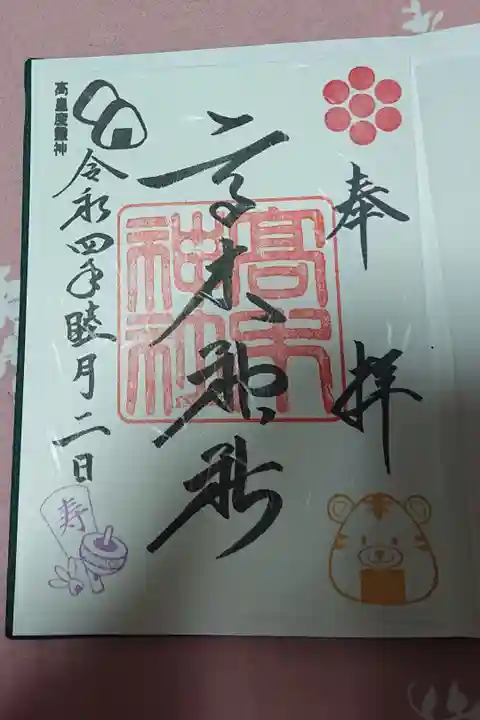 奉拝
高木神社
高木神社
令和四年睦月二日
高皇産霊神
寿